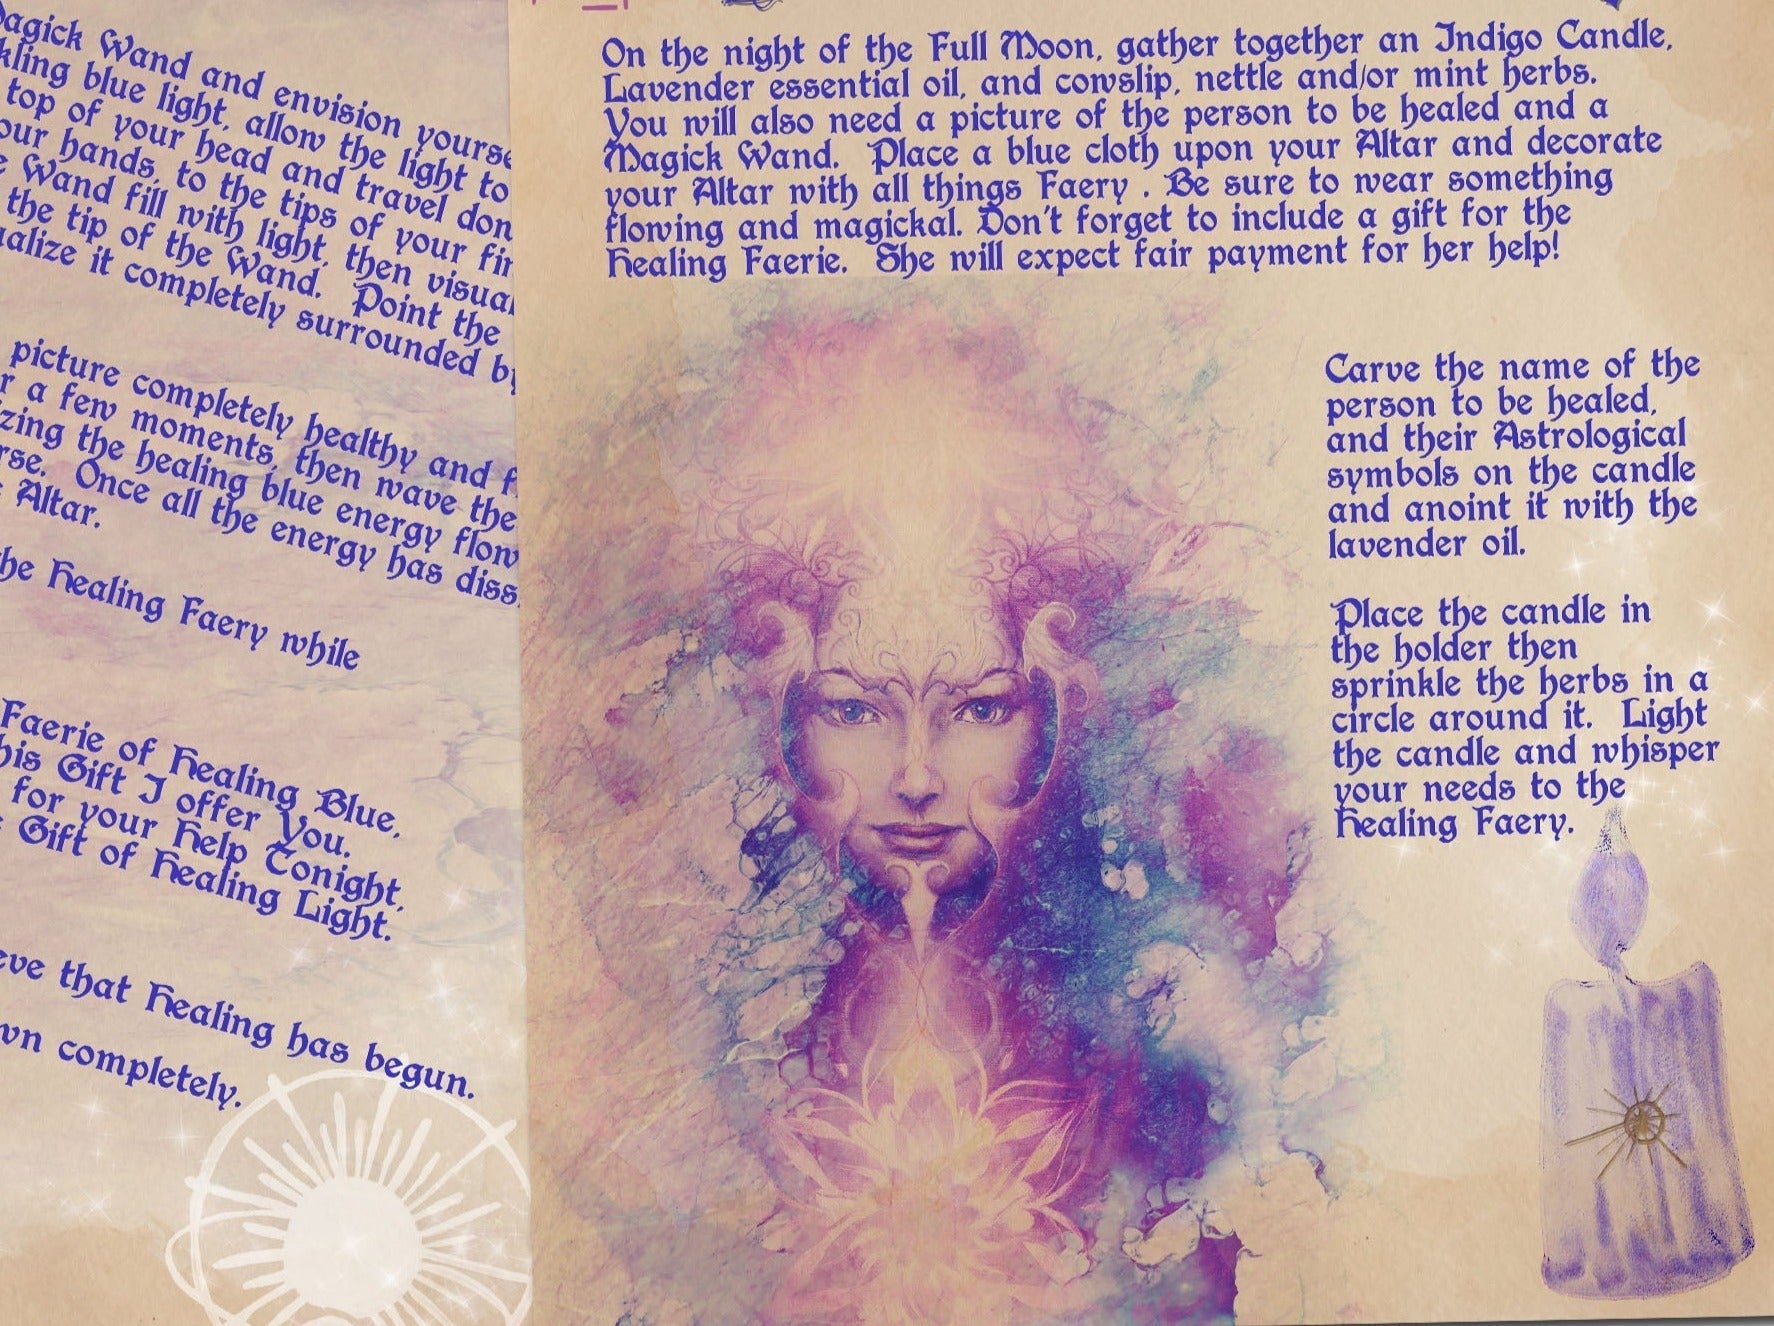 On the night of the Full Moon, gather together an Indigo Candle,
Lavender essential oil, and cowslip, nettle and/or mint herbs.
You will also need a picture of the person to be healed and a
Magick Wand. Place a blue cloth upon your Altar and decorate
your Altar with all things Faery . Be sure to wear something
flowing and magickal. Don't forget to include a gift for the
Healing Faerie. She will expect fair payment for her help!
Carve the name of the
person to be healed,
and their Astrological
symbols on the candle
and anoint it with the
lavender oil.
Place the candle in
the holder then
sprinkle the herbs in a
circle around it. Light
the candle and whisper
your needs to the
Healing Faery.
Wand and envision
blue light, allow the light to
top of your head and travel
hands, to the tips of your
Wand fill with light, then
the tip of the Wand. Point the
it completely surrounded
picture completely healthy and
a few moments, then wave the
the healing blue energy
Once all the energy has
Altar.
Healing Faery while
Faerie of Healing Blue,
Gift I offer You.
for your Help Tonight,
Gift of Healing Light.
that Healing has begun.
completely.